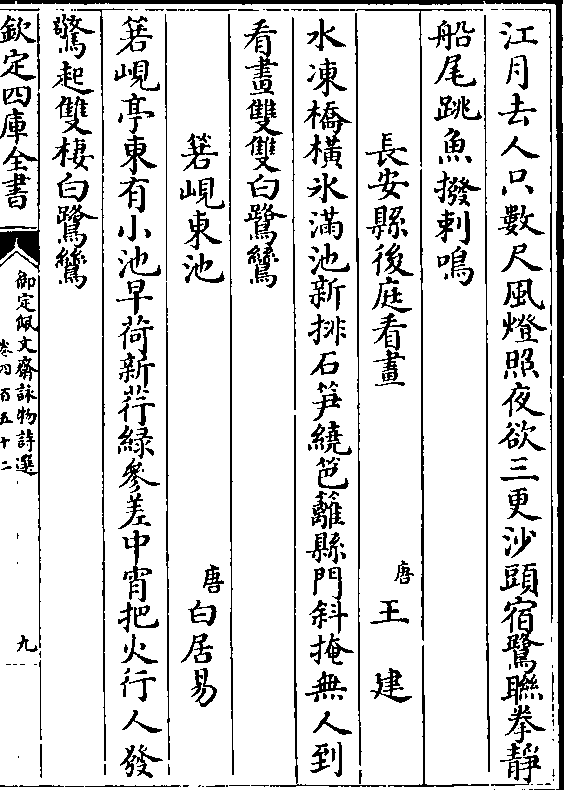 江月去人只數尺風燈照夜欲三更沙頭宿鷺聯拳靜
船尾跳魚撥剌鳴
長安縣後庭看畫
唐王建
水凍橋橫氷滿池新排石笋繞笆籬縣門斜掩無人到
看畫雙雙白鷺鷥
箬峴東池
唐白居易
箬峴亭東有小池早荷新荇緑參差中宵把火行人發
驚起雙棲白鷺鷥
欽定四庫全書
御定佩文齋詠物詩選
卷四百五十二
九